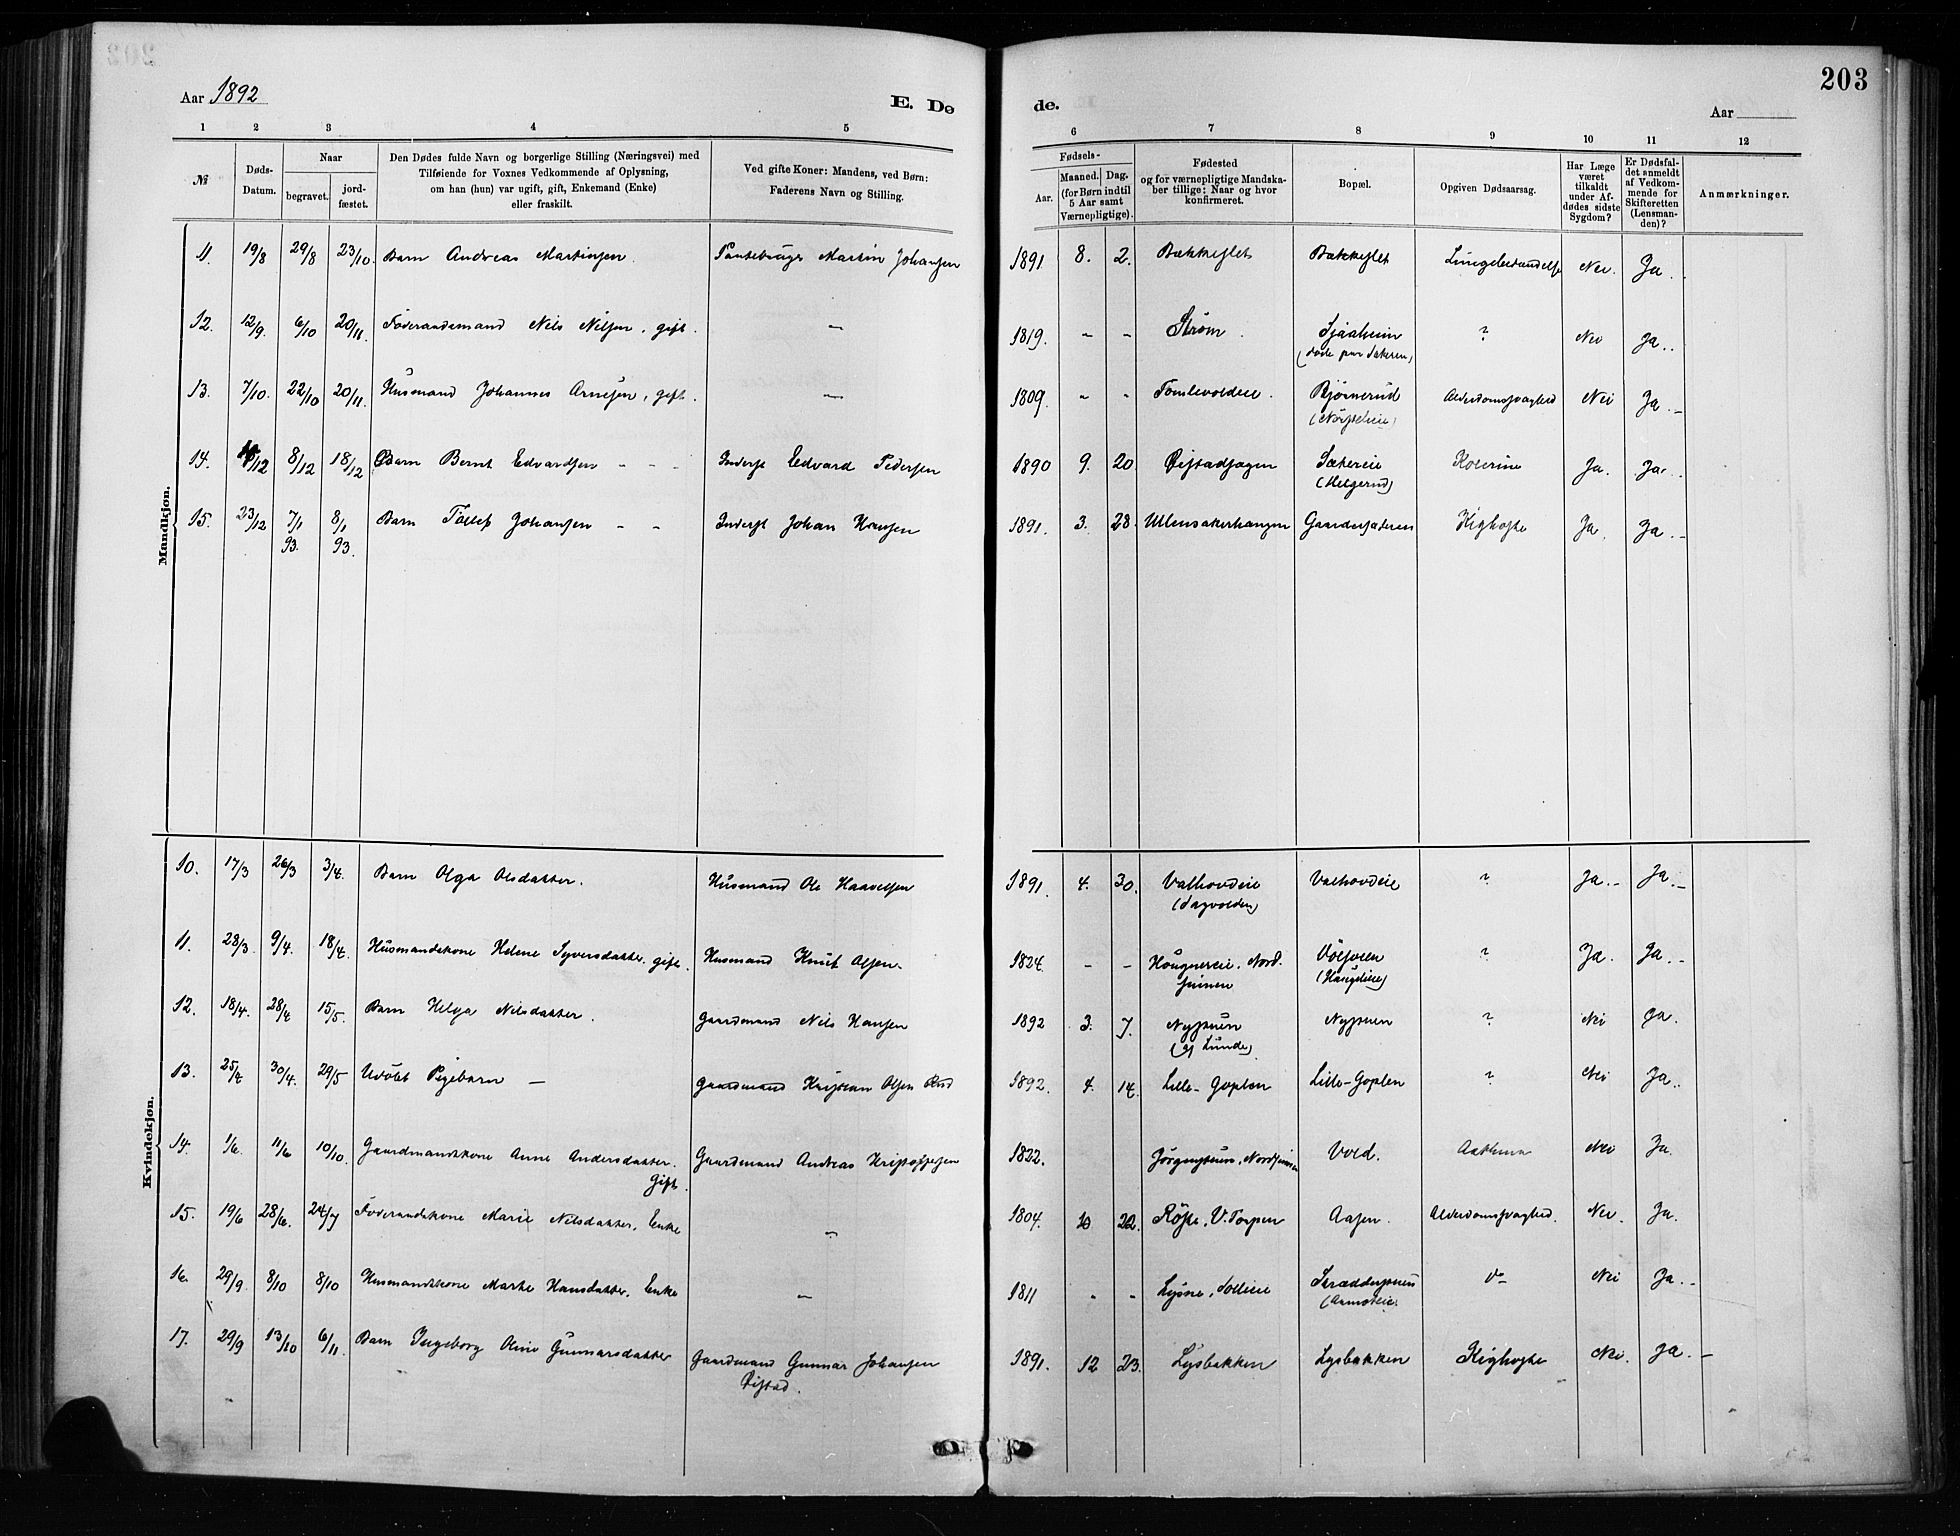 203
Aar 1892
E. Dø
de.
Aar
1 2 3 4 5 6 7 8 9 10 11 12
№
Døds-Datum.
Naar
begravet.
jord-fæstet.
Den Dødes fulde Navn og borgerlige Stilling (Næringsvei) med
Tilføiende for Voxnes Vedkommende af Oplysning,
om han (hun) var ugift, gift, Enkemand (Enke)
eller fraskilt.
Ved gifte Koner: Mandens, ved Børn:
Faderens Navn og Stilling.
Fødsels-
Aar.
Maaned. Dag.
(for Børn indtil
5 Aar samt
Værnepligtige).
Fødested
og for værnepligtige Mandska-
ber tillige: Naar og hvor
konfirmeret.
Bopæl.
Opgiven Dødsaarsag.
Har Læge
været
tilkaldt
under Af-
dødes sidste
Sygdom?
Er Dødsfal-
det anmeldt
af Vedkom-
mende for
Skifteretten
(Lensman-
den)?
Anmærkninger.
Mandkjøn.
11. 19/8 29/8 23/10. Barn Andreas Martinsen. Martin Johansen 1891. 8. 2. Bækkeflet Bækkeflet Lungebetændelse Nei. Ja.
12. 12/9. 6/10 20/11. Føderaadsmand Nils Nilsen, gift. — 1819. - - Strøm. ? Nei Ja.
13. 7/10. 22/10 20/11. Husmand Johannes Arnesen, gift. — 1809. " " Tomlevoldeie. Bjørnerud Alderdomssvaghed Nei Ja. —
14. /12 8/12 18/12 Barn Bernt Edvardsen - - - Inderst Edvard Pedersen 1890 9. 20. Sætereie Kolerine Ja. Ja.
(Helgerud)
15. 23/12 7/1 93. 8/1 93. Barn Tollef Johansen - - Inderst Johan Hansen 1891. 3. 28. Ullensakerhagen Gaardersæteren Kighoste Ja. Ja. —
Kvindekjøn.
10. 17/3 26/3 3/4. Barn Olga Olsdatter. Husmand Ole Haavelsen 1891. 4. 30. Valhovdeie Valhovdeie ? Ja. — Ja. —
11. 28/3. 9/4. 18/4. Husmandskone Helene Syversdatter, gift. Husmand Knut Olsen. 1824. - - Haugnereie, Nord- ? Ja. Ja. —
sinnen
12. 18/4. 28/4 15/5. Barn Helga Nilsdatter. Gaardmand Nils Hansen 1892 3. 7. Nystuen Nystuen ? Nei Ja.
(af Lunde)
13. 25/4 30/4. 29/5 Udøbt Pigebarn — Gaardmand Kristian Olsen Rud 1892. 4. 14. Lille-Goplen Lille-Goplen ? Nei Ja.
14. 1/6. 11/6 10/10. Gaardmandskone Anne Andersdatter. Gaardmand Andreas Kristoffersen 1822. Vold. Asthma Nei Ja.
Gift.
15. 19/6 28/6. 24/7 Føderaadskone Marie Nilsdatter, Enke — 1804. 10 22. Røste, V. Torpen Aasen. Alderdomssvaghed. Nei. Ja.
16. 29/9. 8/10 8/10 Husmandskone Marte Hansdatter, Enke — 1811 - - Lysne, Solleie Skrædderstuen Do Nei Ja. —
17. 29/9 13/10 6/11 Barn Ingeborg Oline Gunnarsdatter Gaardmand Gunnar Johansen 1891. 12 23. Lysbakken Lysbakken Kighoste Nei. Ja. —
Øistad.